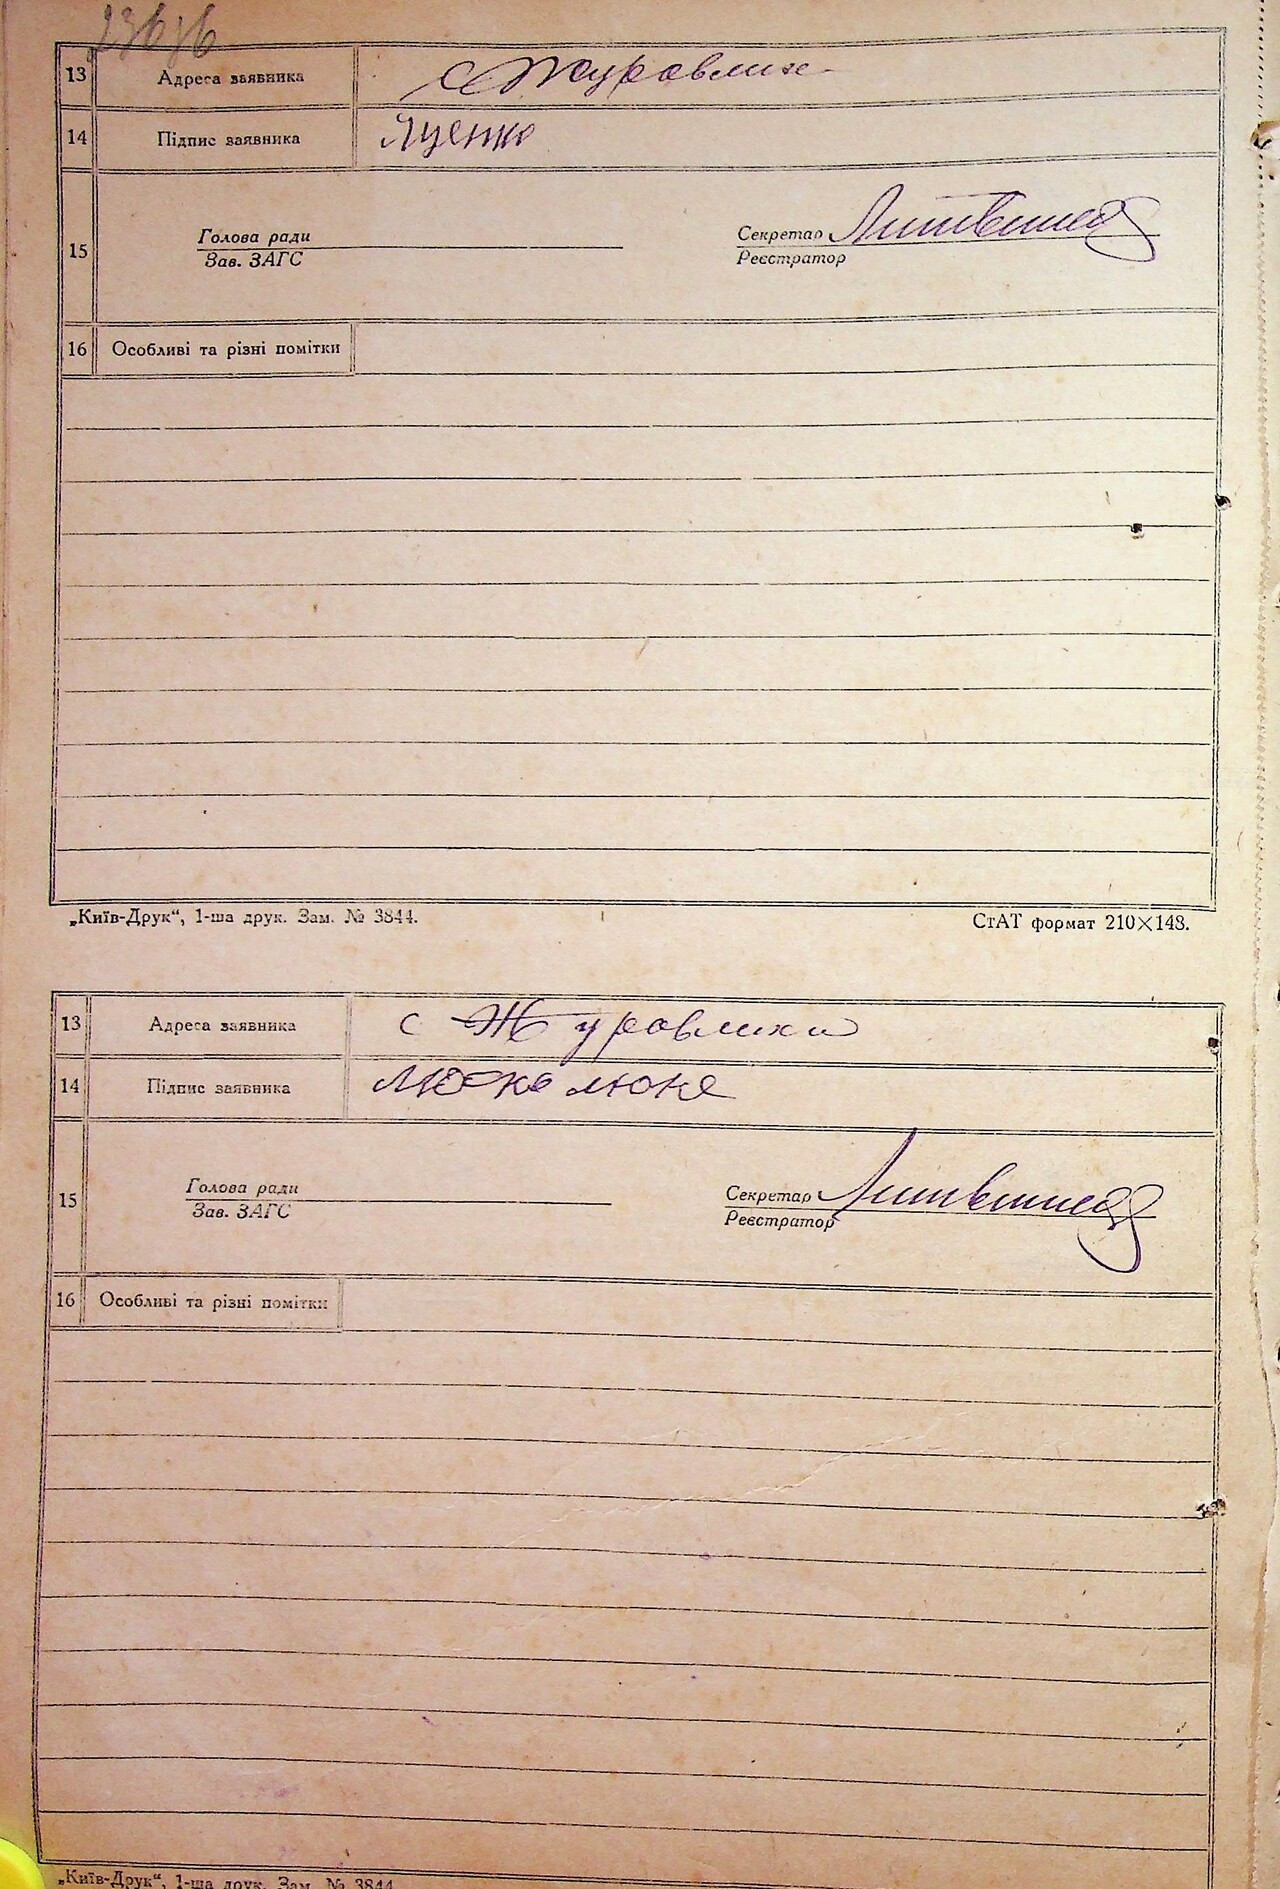 13 Адреса заявника с Журавлих
14 Підпис заявника Яценко
15 Голова ради Секретар
Зав. ЗАГС Реєстратор
16 Особливі та різні помітки
„Київ-Друк“, 1-ша друк. Зам. № 3844. СтАТ формат 210×148.
13 Адреса заявника с Журавлихи
14 Підпис заявника
15 Голова ради Секретар
Зав. ЗАГС Реєстратор
16 Особливі та різні помітки
„Київ-Друк“, 1-ша друк. Зам. № 3844